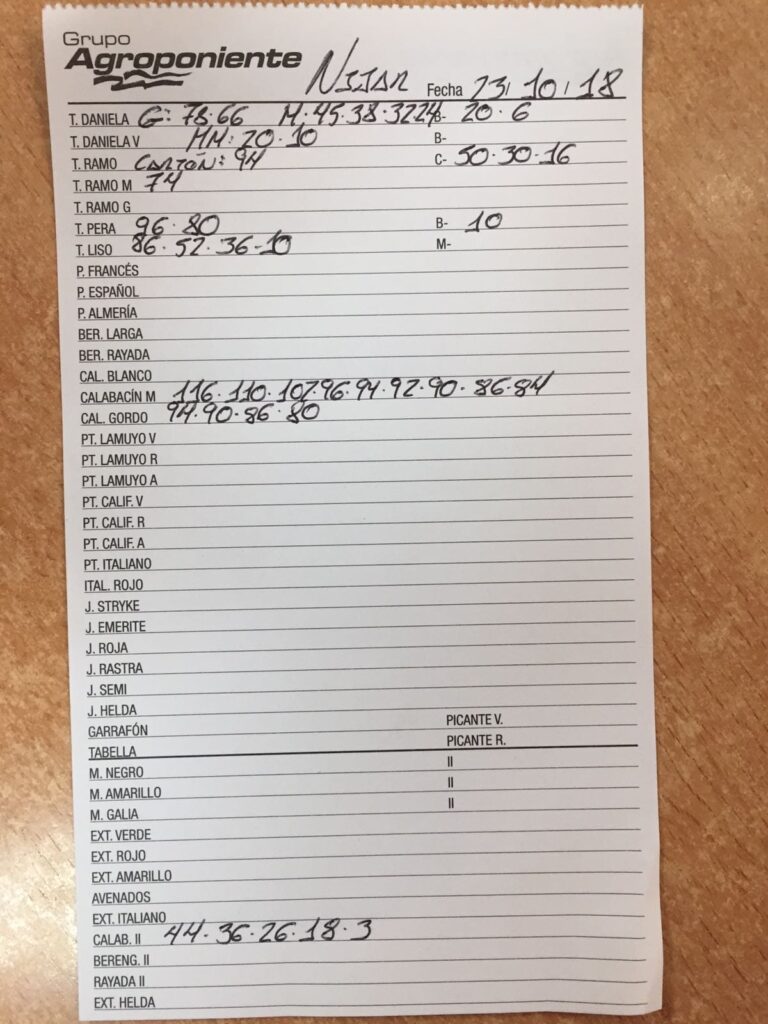 Grupo
Agroponiente
NIJAR Fecha 23/ 10 / 18
T. DANIELA G: 78·66 M: 45·38·32 24 B- 20·6
T. DANIELA V MM: 20·10 B-
T. RAMO CARTÓN: 94 C- 50·30·16
T. RAMO M 74
T. RAMO G
T. PERA 96·80 B- 10
T. LISO 86·52·36·10 M-
P. FRANCÉS
P. ESPAÑOL
P. ALMERÍA
BER. LARGA
BER. RAYADA
CAL. BLANCO
CALABACÍN M 116·110·102·96·94·92·90·86·84
CAL. GORDO 94·90·86·80
PT. LAMUYO V
PT. LAMUYO R
PT. LAMUYO A
PT. CALIF. V
PT. CALIF. R
PT. CALIF. A
PT. ITALIANO
ITAL. ROJO
J. STRYKE
J. EMERITE
J. ROJA
J. RASTRA
J. SEMI
J. HELDA
GARRAFÓN PICANTE V.
TABELLA PICANTE R.
M. NEGRO II
M. AMARILLO II
M. GALIA II
EXT. VERDE
EXT. ROJO
EXT. AMARILLO
AVENADOS
EXT. ITALIANO
CALAB. II 44·36·26·18·3
BERENG. II
RAYADA II
EXT. HELDA